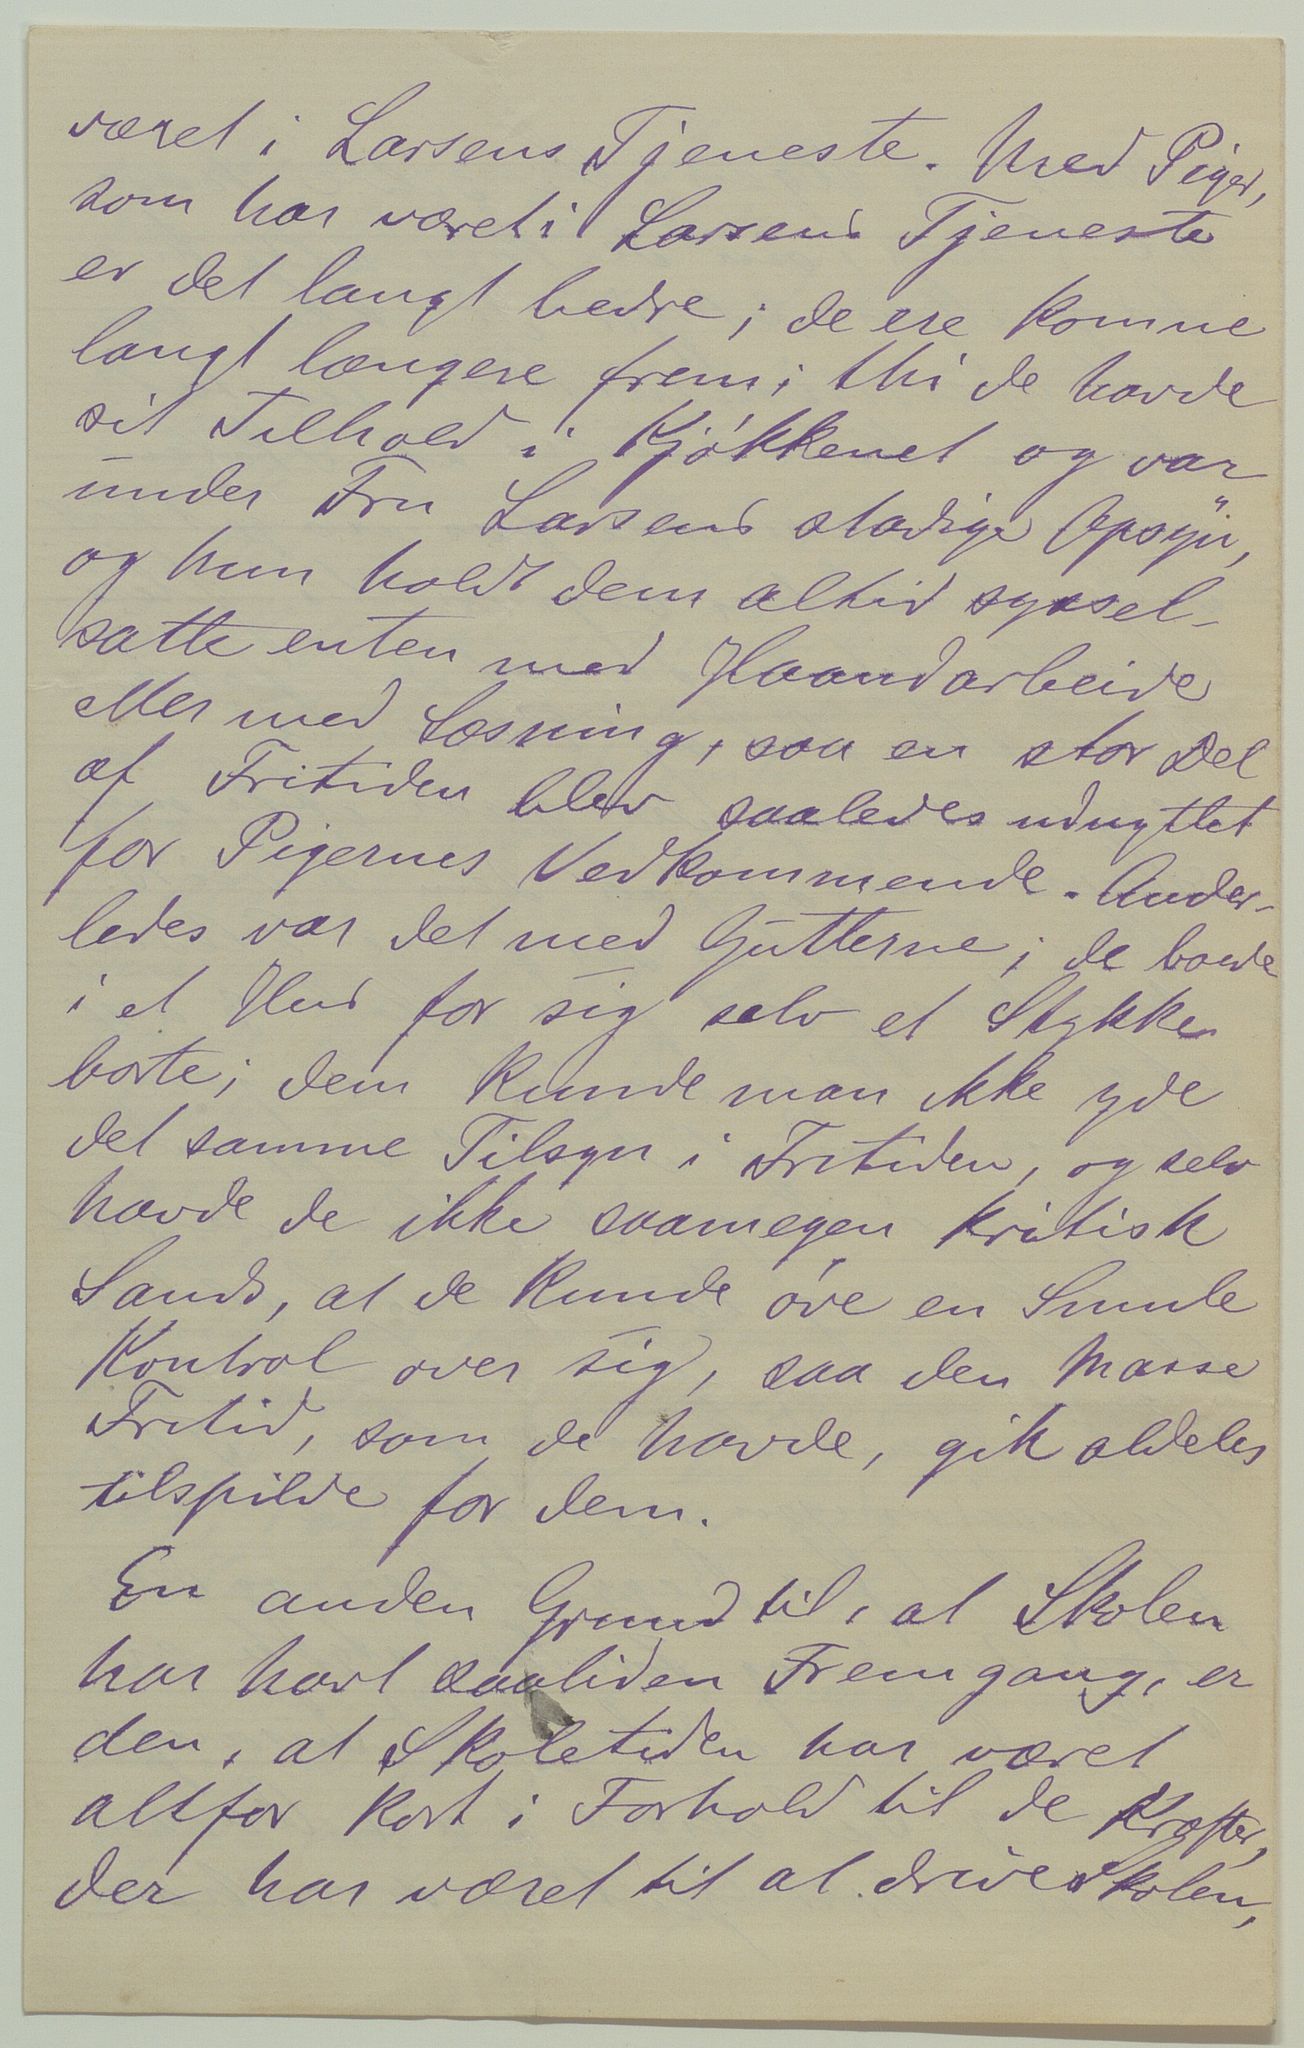 været i Larsens Tjeneste. Med Piger,
som har været i Larsens Tjeneste
er det langt bedre; de ere komne
langt længere frem; thi de havde
sit Tilhold i Kjøkkenet og var
under Fru Larsens stadige Opsyn,
og hun holdt dem altid syssel-
satte enten med Haandarbeide
eller med Læsning, saa en stor Del
af Fritiden blev saaledes udnyttet
for Pigernes Vedkommende. Ander-
ledes var det med Gutterne; de boede
i et Hus for sig selv et Stykke
borte; dem kunde man ikke yde
det samme Tilsyn i Fritiden, og selv
havde de ikke saamegen kritisk
Sands, at de kunde øve en Smule
Kontrol over sig, saa den Masse
Fritid, som de havde, gik aldeles
tilspilde for dem.
En anden Grund til, at Skolen
har havt saaliden Fremgang, er
den, at Skoletiden har været
altfor kort i Forhold til de Kræfter,
der har været til at drive Skolen,